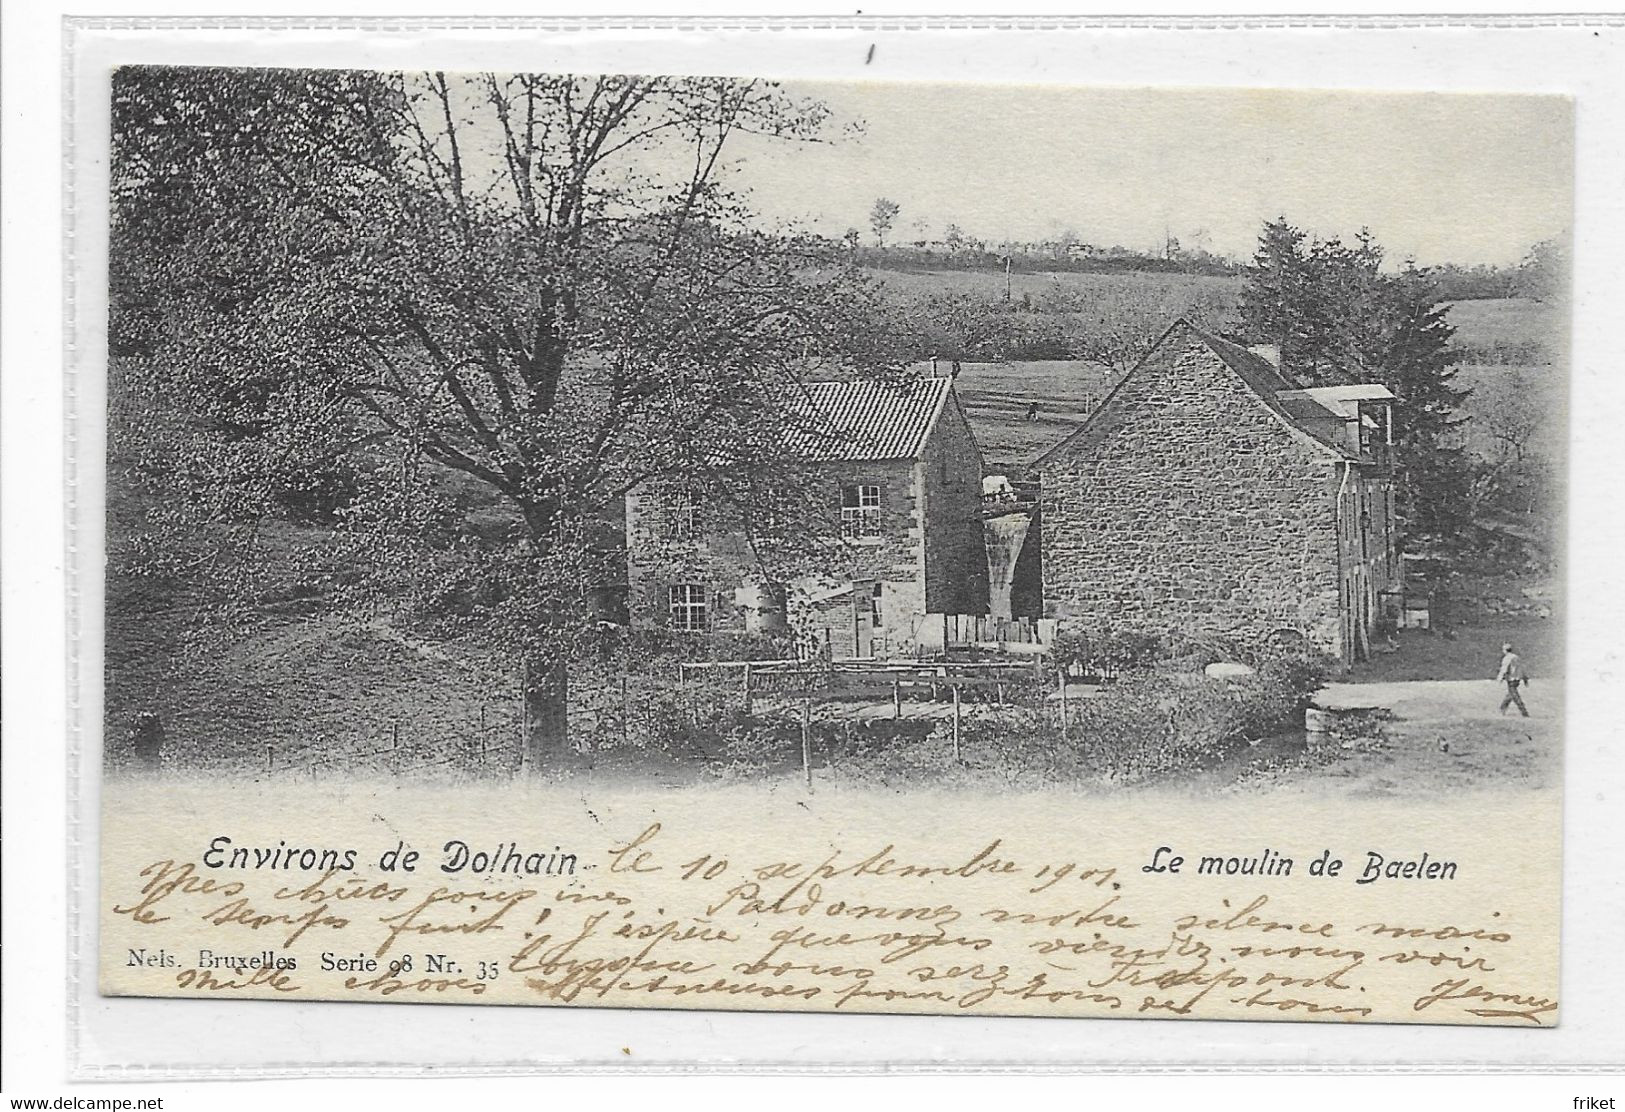 Environs de Dolhain le 10 septembre 1901. Le moulin de Baelen
Mes chères cousines. Pardonnez notre silence mais
le temps fuit ! J'espère que vous viendrez nous voir
Nels. Bruxelles Serie 98 Nr. 35 lorsque vous serez à Trooz
Mille choses affectueuses pour tous de tous
www.delcampe.net
friket